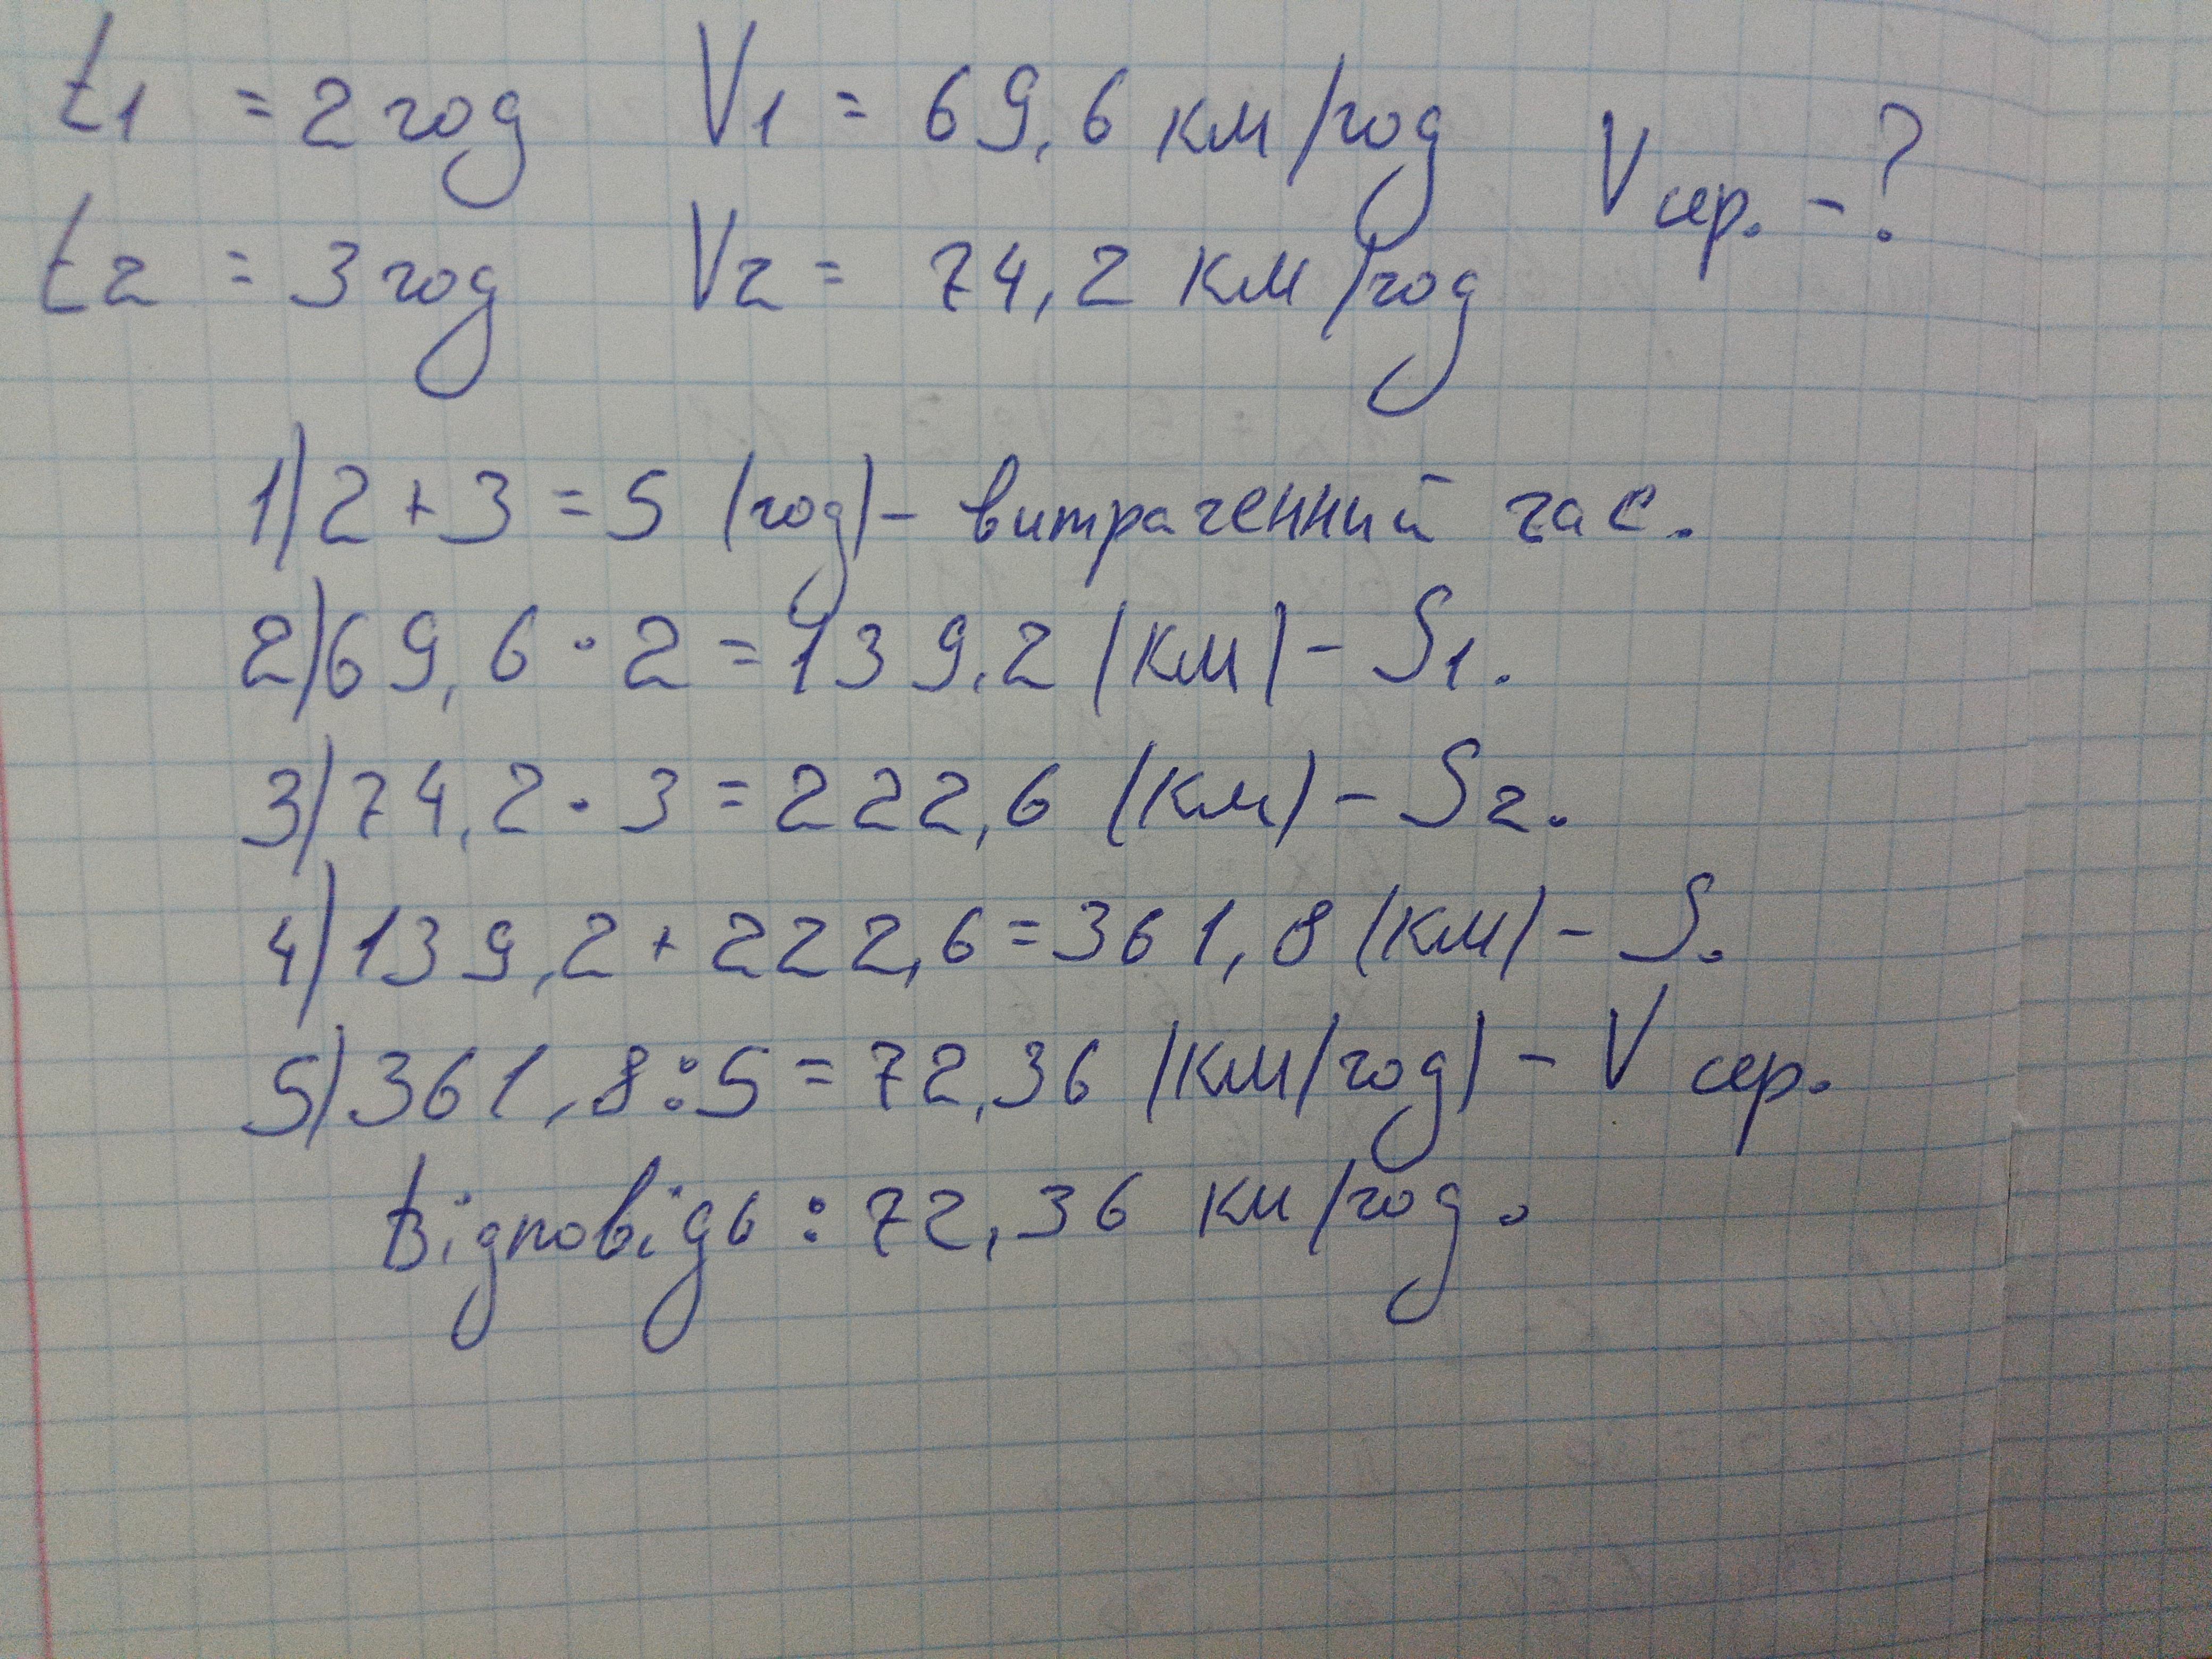 t1 = 2 год V1 = 69,6 км/год Vсер. - ?
t2 = 3 год V2 = 74,2 км/год
1) 2 + 3 = 5 (год) - витраченний час.
2) 69,6 · 2 = 139,2 (км) - S1.
3) 74,2 · 3 = 222,6 (км) - S2.
4) 139,2 + 222,6 = 361,8 (км) - S.
5) 361,8 : 5 = 72,36 (км/год) - V сер.
Відповідь : 72,36 км/год.